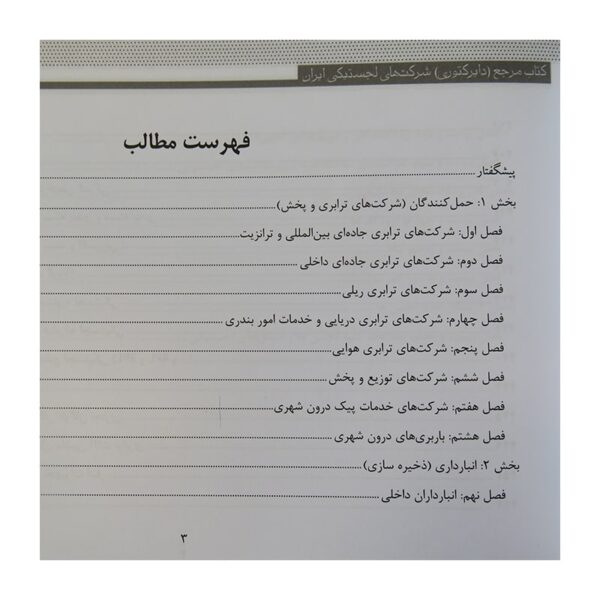 کتاب مرجع (دایرکتوری) شرکت‌های لجستیکی ایران
فهرست مطالب
پیشگفتار
بخش ۱: حمل‌کنندگان (شرکت‌های ترابری و پخش)
فصل اول: شرکت‌های ترابری جاده‌ای بین‌المللی و ترانزیت
فصل دوم: شرکت‌های ترابری جاده‌ای داخلی
فصل سوم: شرکت‌های ترابری ریلی
فصل چهارم: شرکت‌های ترابری دریایی و خدمات امور بندری
فصل پنجم: شرکت‌های ترابری هوایی
فصل ششم: شرکت‌های توزیع و پخش
فصل هفتم: شرکت‌های خدمات پیک درون شهری
فصل هشتم: باربری‌های درون شهری
بخش ۲: انبارداری (ذخیره سازی)
فصل نهم: انبارداران داخلی
۳